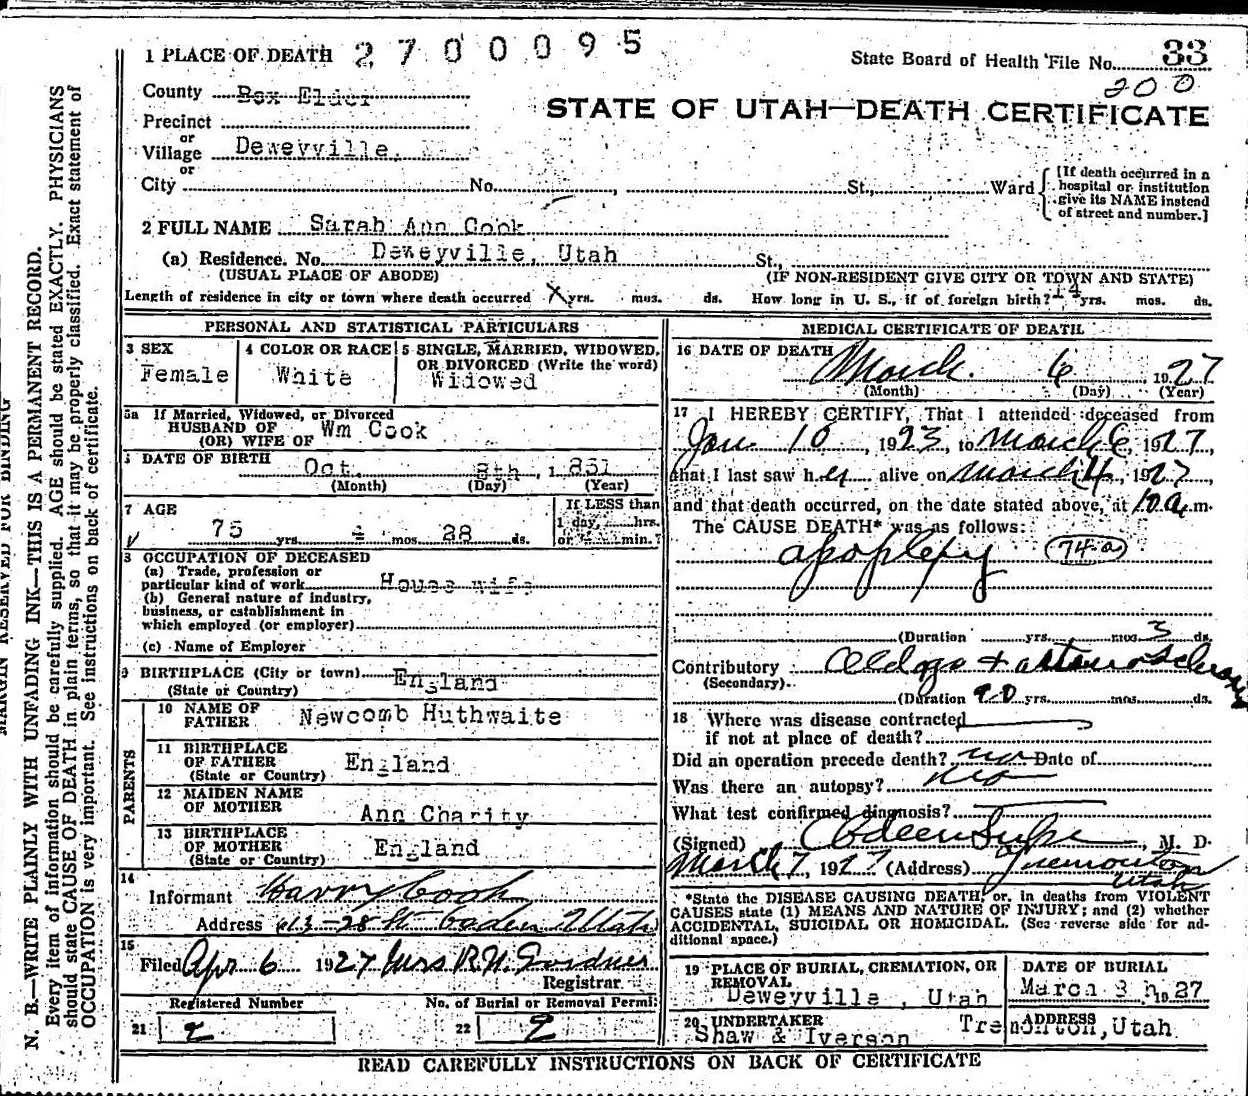 1 PLACE OF DEATH 2 7 0 0 0 9 5
State Board of Health File No. 33
200
County Box Elder
STATE OF UTAH—DEATH CERTIFICATE
Precinct
or
Village Deweyville.
or
City No. , St., Ward
[If death occurred in a hospital or institution give its NAME instead of street and number.]
2 FULL NAME Sarah Ann Cook
(a) Residence. No. Deweyville, Utah St.,
(USUAL PLACE OF ABODE) (IF NON-RESIDENT GIVE CITY OR TOWN AND STATE)
Length of residence in city or town where death occurred X yrs. mos. ds. How long in U. S., if of foreign birth? yrs. mos. ds.
PERSONAL AND STATISTICAL PARTICULARS
3 SEX
Female
4 COLOR OR RACE
White
5 SINGLE, MARRIED, WIDOWED,
OR DIVORCED (Write the word)
Widowed
5a If Married, Widowed, or Divorced
HUSBAND OF
(OR) WIFE OF Wm Cook
DATE OF BIRTH Oct. 8th, 1851
(Month) (Day) (Year)
7 AGE
75 yrs. 4 mos. 28 ds.
If LESS than
1 day, hrs.
or min.?
8 OCCUPATION OF DECEASED
(a) Trade, profession or
particular kind of work House wife
(b) General nature of industry,
business, or establishment in
which employed (or employer)
(c) Name of Employer
9 BIRTHPLACE (City or town) England
(State or Country)
PARENTS
10 NAME OF
FATHER Newcomb Huthwaite
11 BIRTHPLACE
OF FATHER England
(State or Country)
12 MAIDEN NAME
OF MOTHER Ann Charity
13 BIRTHPLACE
OF MOTHER England
(State or Country)
14
Informant Harry Cook
Address 28 St Ogden Utah
15
Filed Apr 6 1927 Mrs R.N. Gardner
Registrar
Registered Number No. of Burial or Removal Permit
21 2 22 2
MEDICAL CERTIFICATE OF DEATH
16 DATE OF DEATH March 6, 1927
(Month) (Day) (Year)
17 I HEREBY CERTIFY, That I attended deceased from
Jan 10, 1923, to March 6, 1927,
that I last saw her alive on March 4, 1927,
and that death occurred, on the date stated above, at 10 a.m.
The CAUSE DEATH* was as follows:
apoplexy 74a
(Duration yrs. mos. 3 ds.
Contributory Old age + arteriosclerosis
(Secondary).
(Duration yrs. mos. ds.
18 Where was disease contracted
if not at place of death?
Did an operation precede death? no Date of
Was there an autopsy? no
What test confirmed diagnosis?
(Signed) Odeen Luke, M. D.
March 7, 1927 (Address) Tremonton
Utah
*State the DISEASE CAUSING DEATH, or, in deaths from VIOLENT
CAUSES state (1) MEANS AND NATURE OF INJURY; and (2) whether
ACCIDENTAL, SUICIDAL OR HOMICIDAL. (See reverse side for ad-
ditional space.)
19 PLACE OF BURIAL, CREMATION, OR
REMOVAL
Deweyville, Utah
DATE OF BURIAL
March 8 h 1927
20 UNDERTAKER
Shaw & Iverson
ADDRESS
Tremonton, Utah
READ CAREFULLY INSTRUCTIONS ON BACK OF CERTIFICATE
MARGIN RESERVED FOR BINDING
N. B.—WRITE PLAINLY WITH UNFADING INK—THIS IS A PERMANENT RECORD.
Every item of information should be carefully supplied. AGE should be stated EXACTLY. PHYSICIANS
should state CAUSE OF DEATH in plain terms, so that it may be properly classified. Exact statement of
OCCUPATION is very important. See instructions on back of certificate.